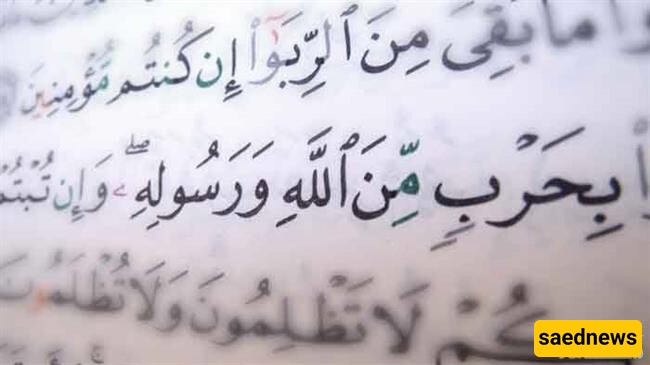 وا۟ مَا بَقِىَ مِنَ ٱلرِّبَوٰٓا۟ إِن كُنتُم مُّؤْمِنِينَ
بِحَرْبٍ مِّنَ ٱللَّهِ وَرَسُولِهِۦ ۖ وَإِن تُبْتُمْ
كُمْ لَا تَظْلِمُونَ وَلَا تُظْلَمُونَ
saednews